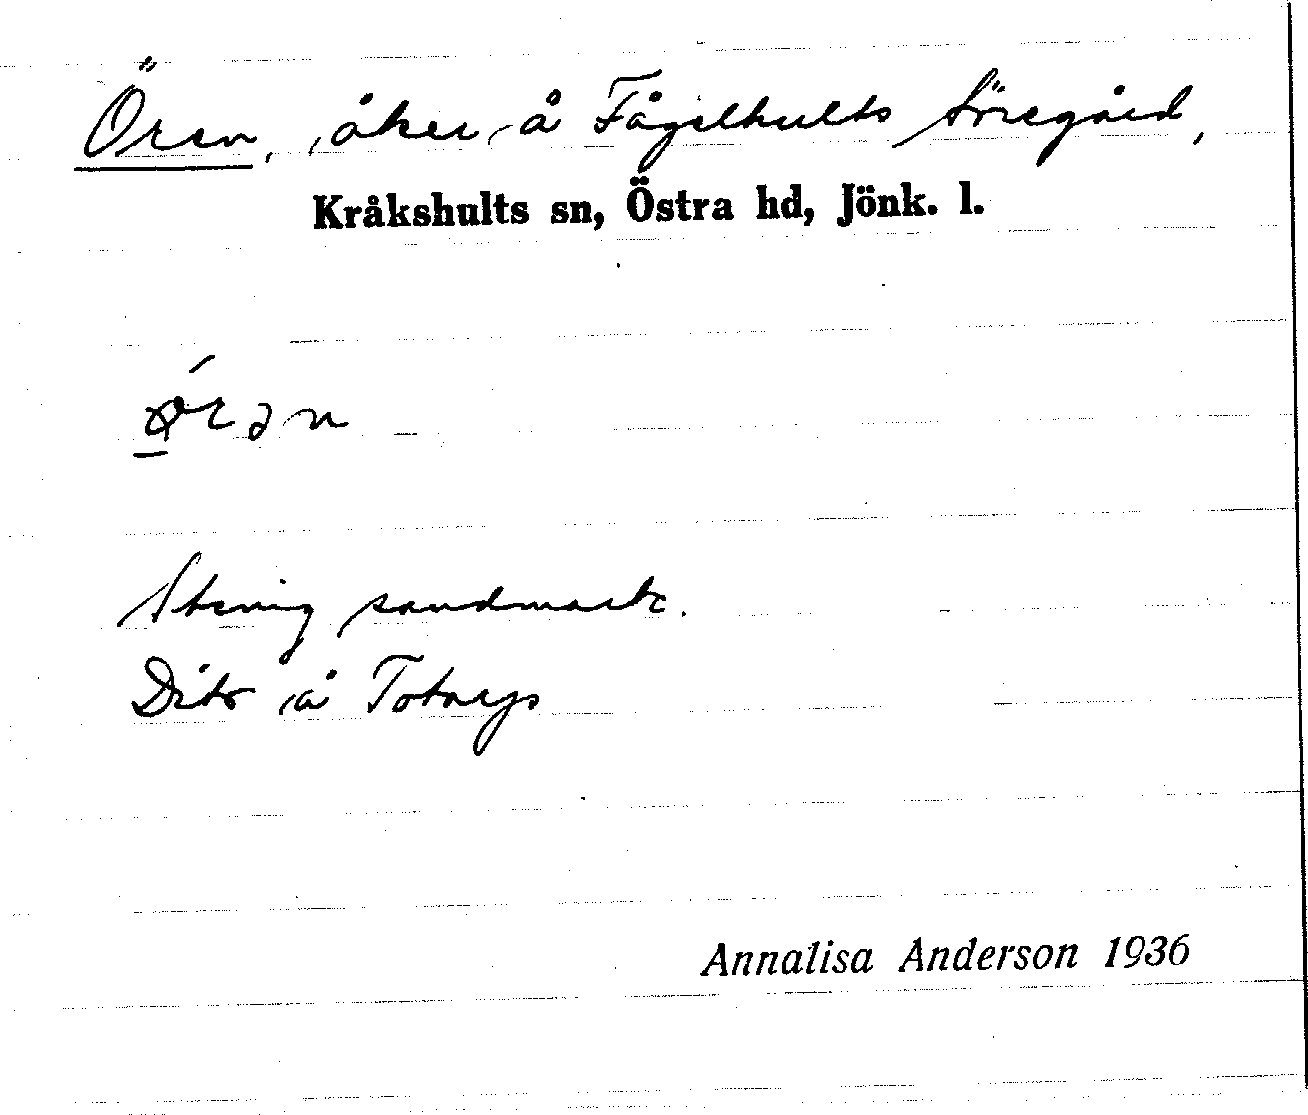 Ören, åker å Fågelhults Söregård,
Kråkshults sn, Östra hd, Jönk. l.
ǿ̱rən
Stenig sandmark.
Dito å Totarps
Annalisa Anderson 1936